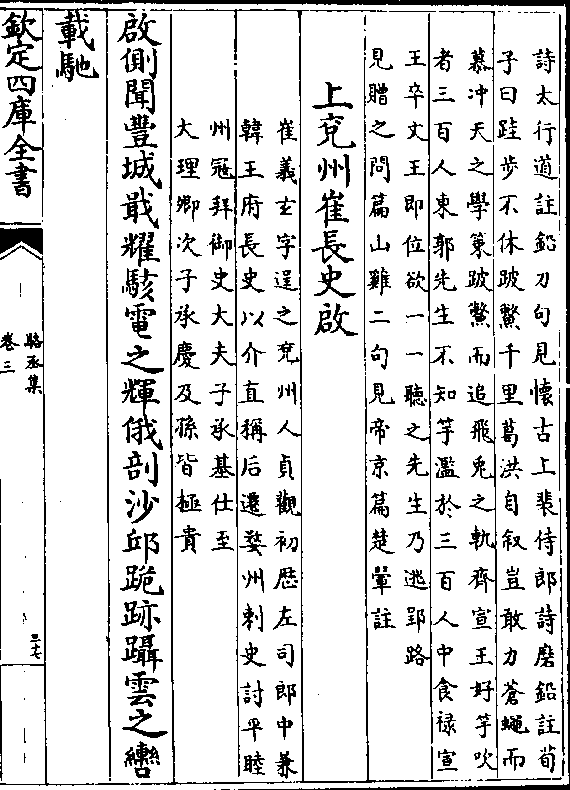 詩太行道註鉛刀句見懷古上裴侍郎詩磨鉛註荀
子曰跬步不休跛鱉千里葛洪自叙豈敢力蒼蠅而
慕冲天之學策跛鱉而追飛兎之軌齊宣王好竽吹
者三百人東郭先生不知竽濫於三百人中食禄宣
王卒文王即位欲一一聽之先生乃逃郢路
見贈之問篇山雞二句見帝京篇楚鞏註
上兖州崔長史啟
崔義玄字逞之兖州人貞觀初歴左司郎中兼
韓王府長史以介直稱后遷婺州刺史討平睦
州冠拜御史大夫子承基仕至
大理卿次子承慶及孫皆極貴
啟側聞豐城戢耀駭電之輝俄剖沙邱跪跡躡雲之轡
載馳
欽定四庫全書
駱丞集
卷三
三十七